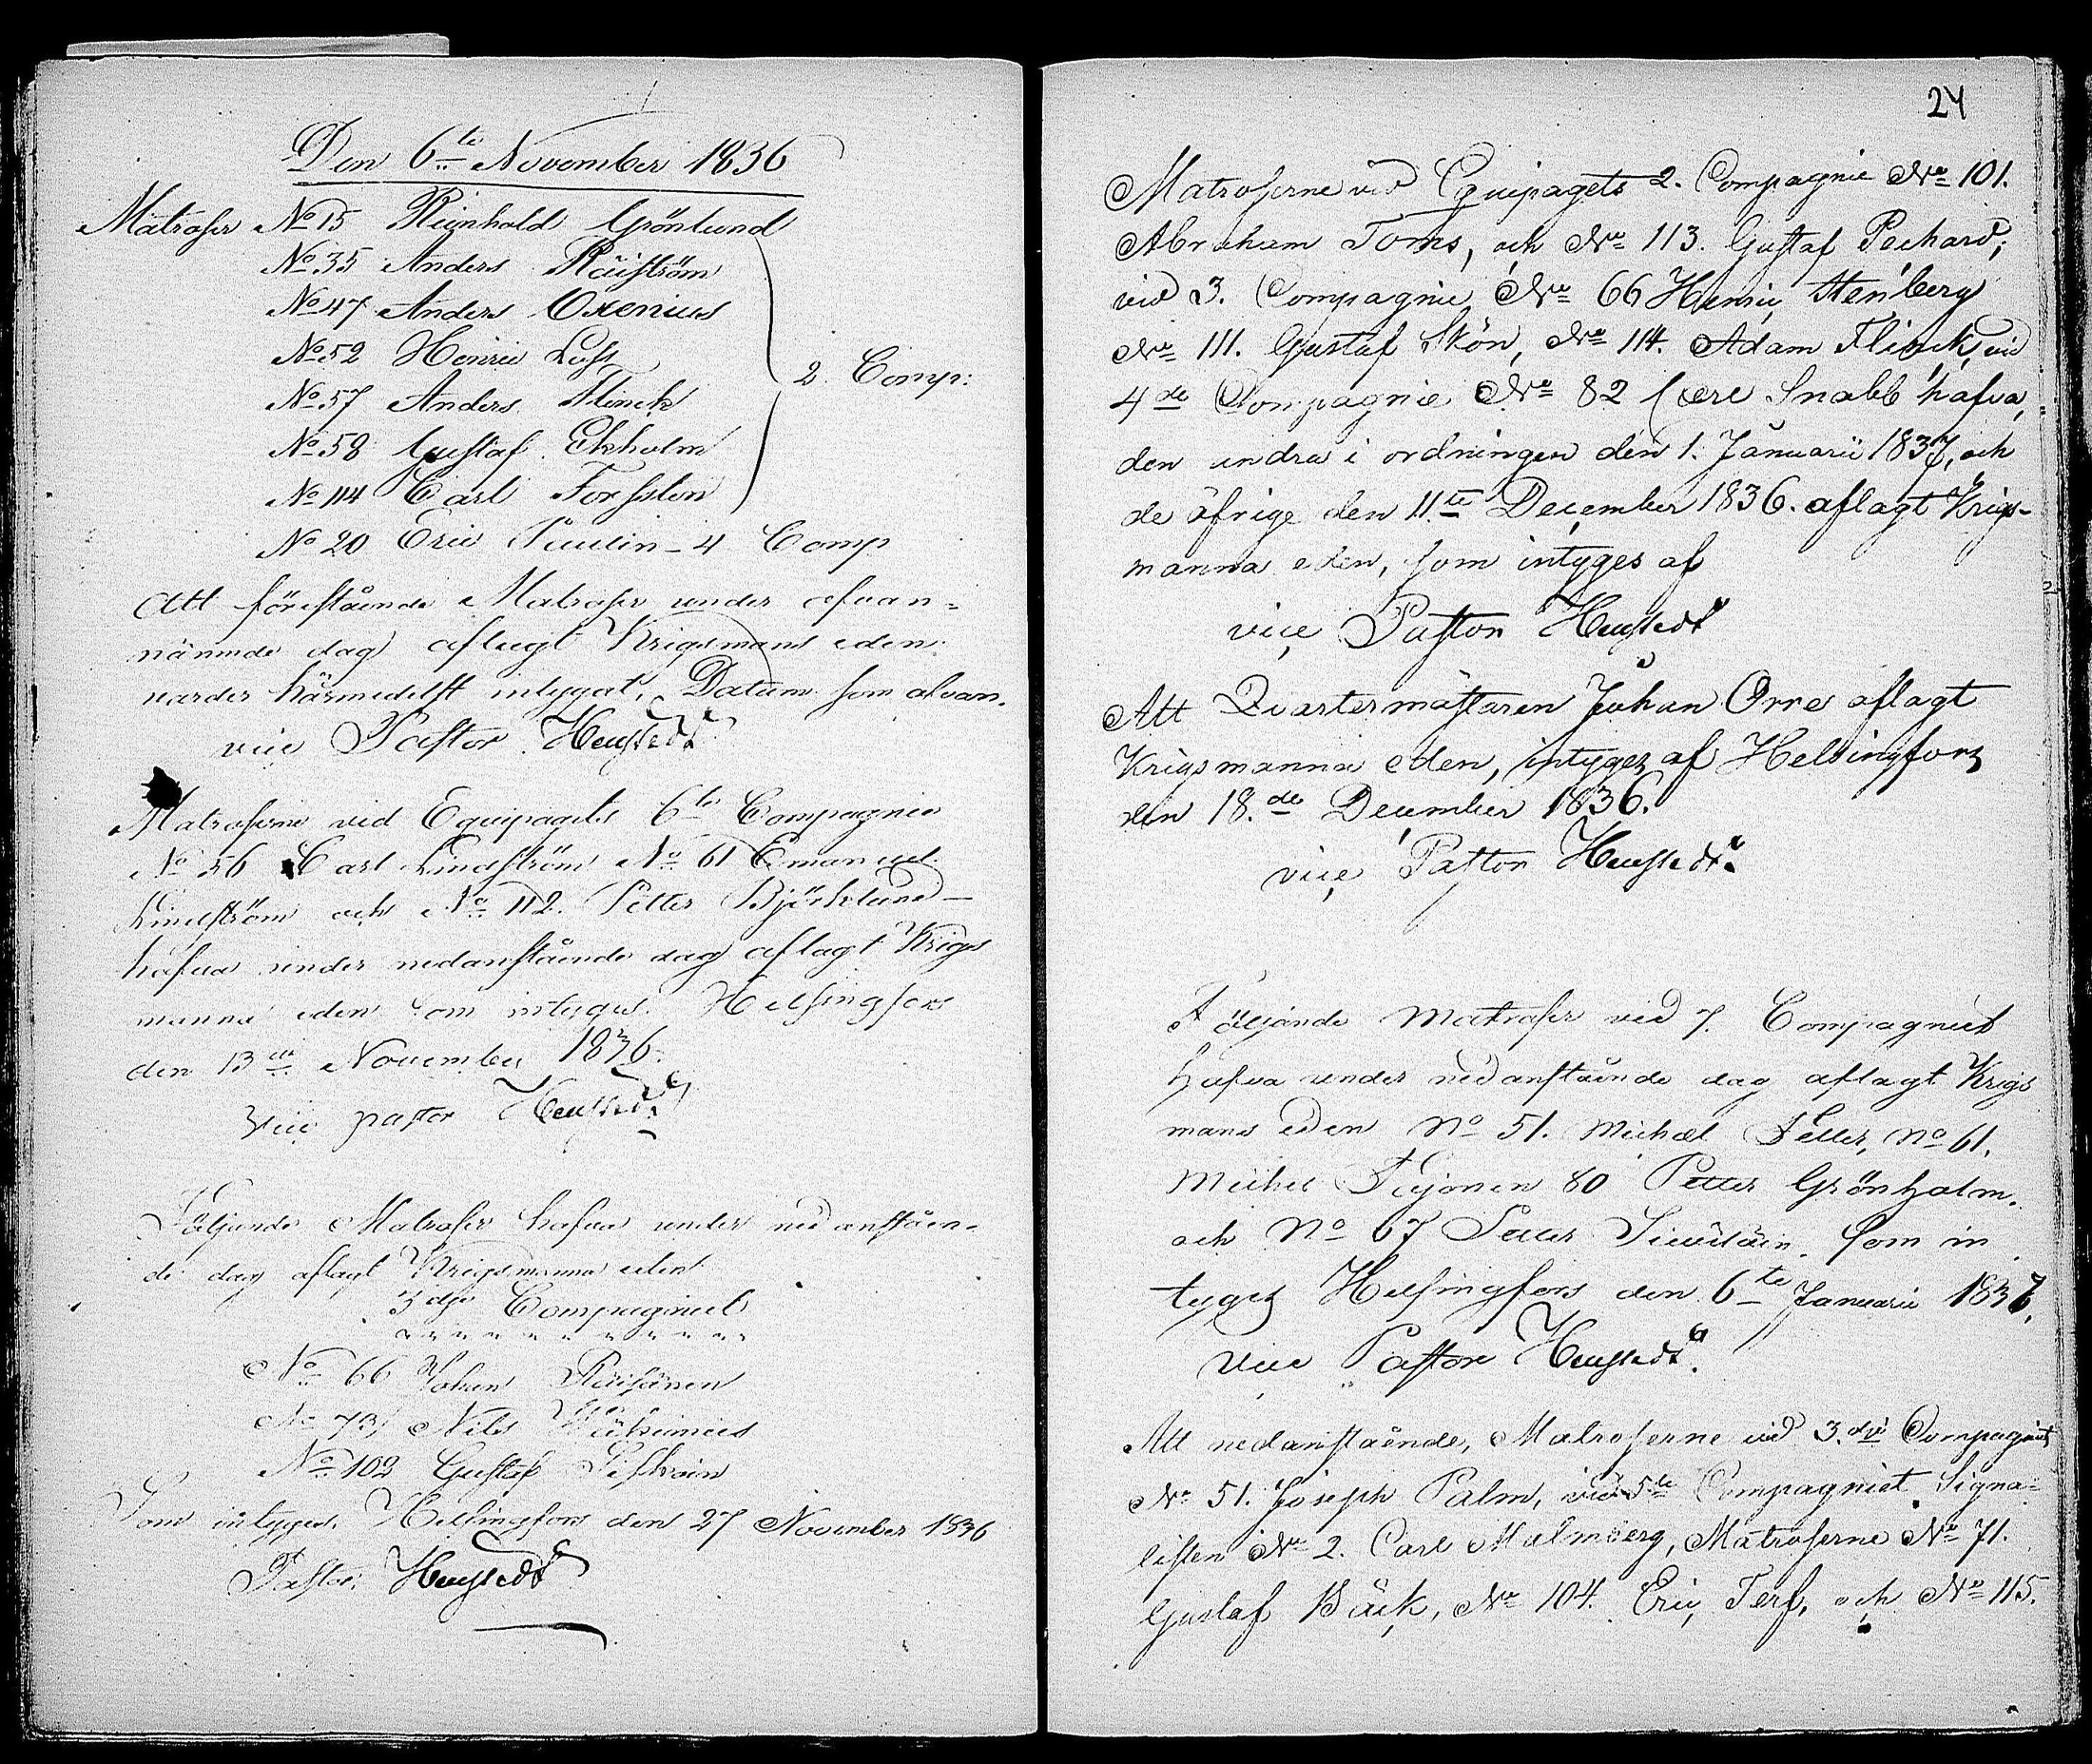 Den 6te November 1836
Matroser No 15 Reinhold Grönlund
No 35 Anders Räiström
No 47 Anders Oxenius
No 52 Henric
No 57 Anders Flinck
No 58 Gustaf Ekholm
2 Comp:
No 114 Carl Forsslen
No 20 Eric Paulin - 4 Comp
Att förestående Matroser under ofvan=
nämnde dag aflagt Krigsmans eden
varder härmedelst intygat, Datum som ofvan.
vice Pastor Heustedt
Matroserne vid Equipagets 6te Compagnie
No 56 Carl Lindström No 61 Emanuel
Lindström och No 112. Petter Björklund -
hafva under nedanstående dag aflagt Krigs
manna eden som intyges. Helsingfors
den 13de November 1836.
Vice pastor Heustedt
Följande Matroser hafva under nedanståen-
de dag aflagt Krigsmanna eden
3dje Compagniet
No 66 Johan Räisänen
No 73, Nils
No 102 Gustaf
Som intyges. Helsingfors den 27 November 1836
Pastor, Heustedt
24
Matroserne vid Equipagets 2. Compagnie No 101.
Abraham Toms, och No 113. Gustaf Pechard;
vid 3. Compagnie No 66 Henric Stenberg
No 111. Gustaf Skön, No 114. Adam Flinck, vid
4de Compagnie No 82 Carl Snabb hafva,
den andra i ordningen den 1. Januarii 1837, och
de öfrige den 11te December 1836. aflagt Krigs-
manna eden, som intyges af
vice Pastor Heustedt
Att Qvartermästaren Johan Orre aflagt
Krigsmanna eden, intyges af Helsingfors
den 18.de December 1836.
vice Pastor Heustedt.
Följande Matroser vid 7. Compagniet
hafva under nedanstående dag aflagt Krigs
mans eden No 51. Michael Feller, No 61.
Michel Pajonen 80 Petter Grönholm.
och No 67 Petter som in
tyges Helsingfors den 6te Januarii 1837.
Vice Pastor Heustedt.
Att nedanstående, Matroserne vid 3.dje Compagniet
No 51. Joseph Palm, vid 5te Compagniet Signa=
listen No 2. Carl Malmberg, Matroserne No 71.
Gustaf Bäck, No 104. Eric Terf, och No 115.